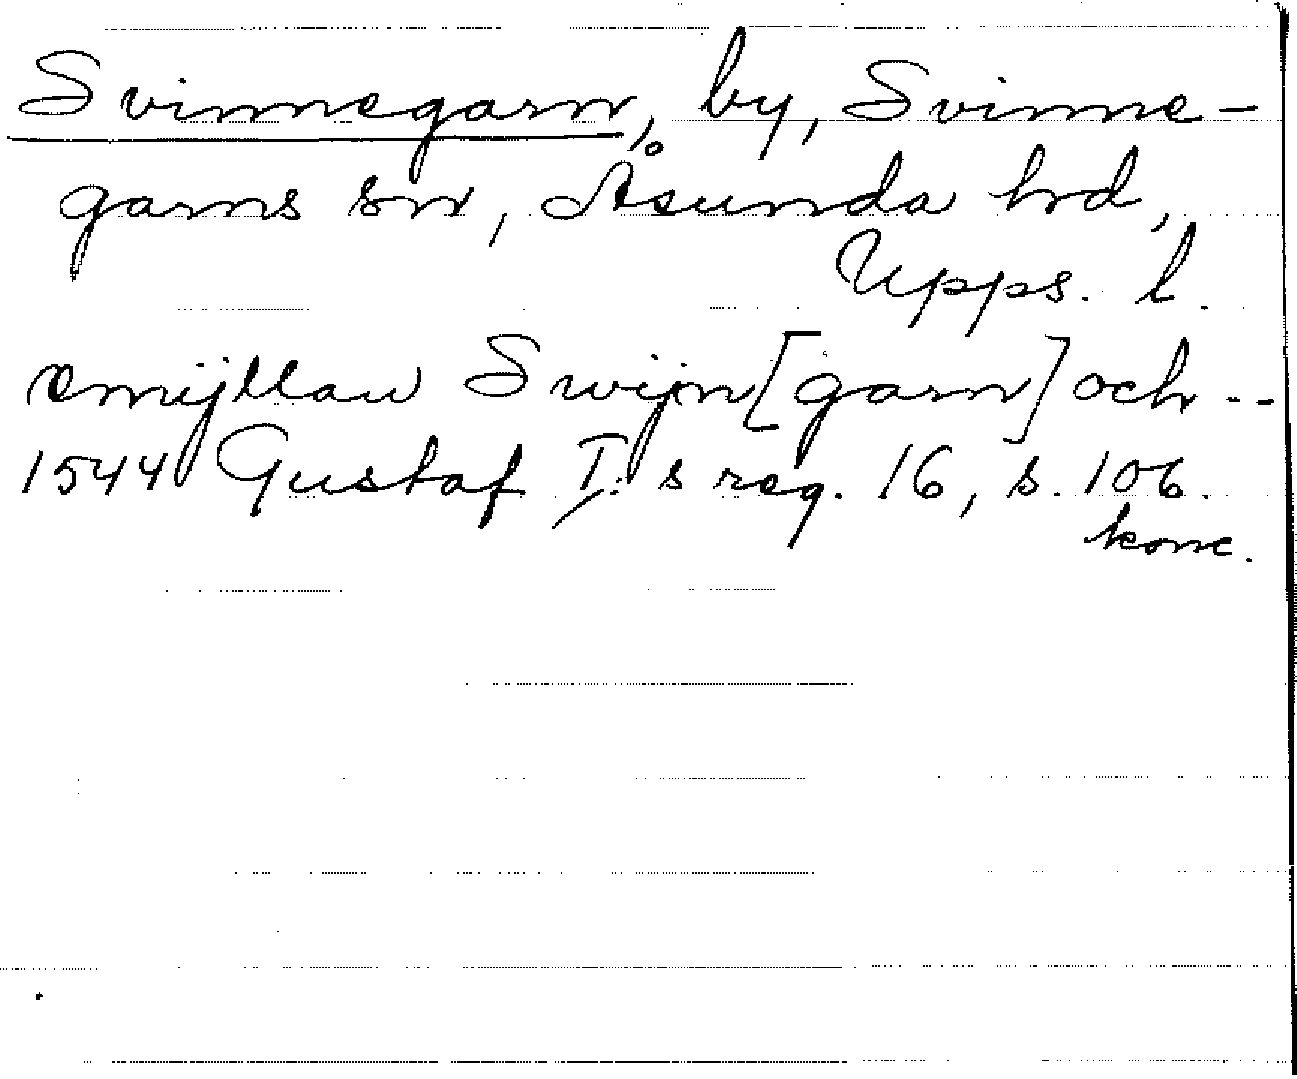 Svinnegarn, by, Svinne-
garns sn, Åsunda hd,
Upps. l.
emijllaw Swijn[garn] och --
1544 Gustaf I:s reg. 16, s. 106.
konc.